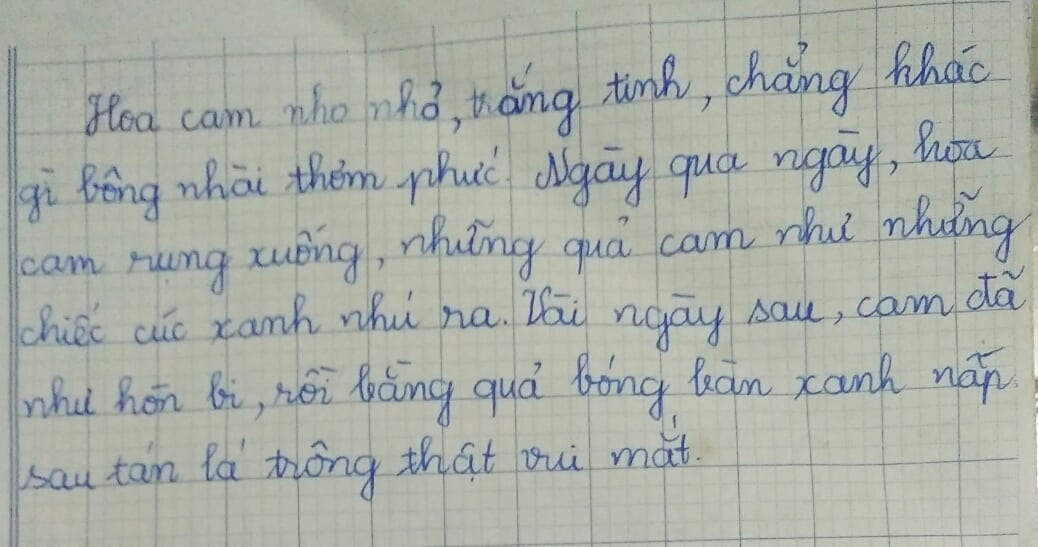 Hoa cam nho nhỏ, trắng tinh, chẳng khác
gì bông nhài thơm phức. Ngày qua ngày, hoa
cam rụng xuống, những quả cam như những
chiếc cúc xanh nhú ra. Vài ngày sau, cam đã
như hòn bi, rồi bằng quả bóng bàn xanh nấp
sau tán lá trông thật vui mắt.